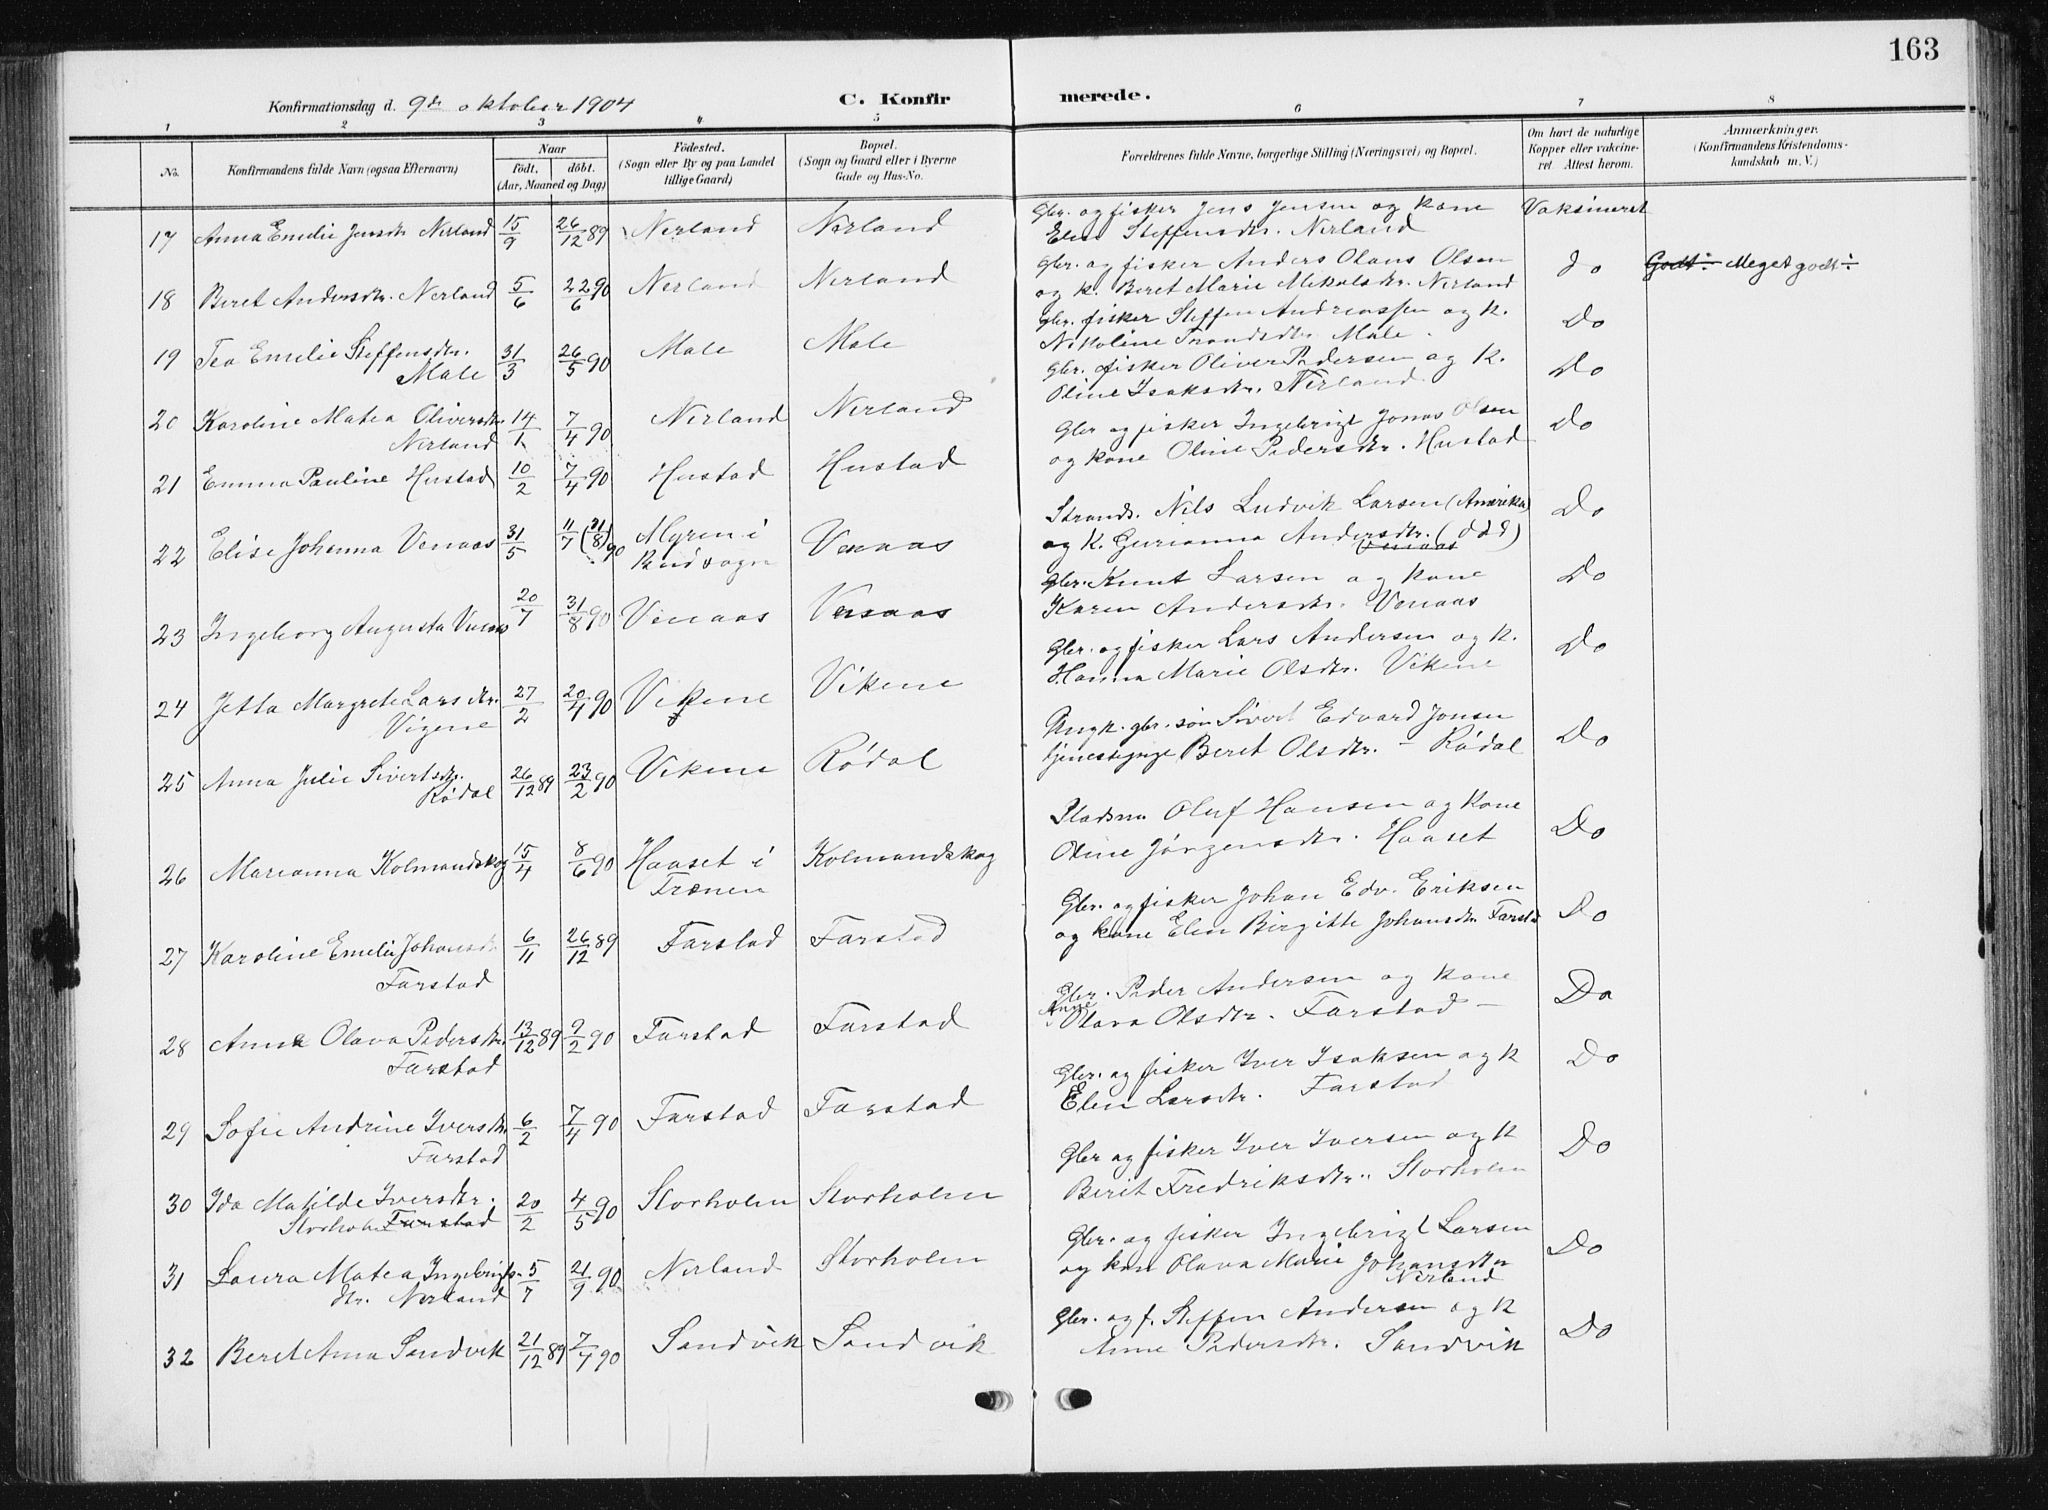 163
Konfirmationsdag d. 9de oktober 1904 C. Konfirmerede.
1 2 3 4 5 6 7 8
No. Konfirmandens fulde Navn (ogsaa Efternavn) Naar født, døbt. (Aar, Maaned og Dag) Fødested. (Sogn eller By og paa Landet tillige Gaard) Bopæl. (Sogn og Gaard eller i Byerne Gade og Hus-No. Forældrenes fulde Navne, borgerlige Stilling (Næringsvei) og Bopæl. Om havt de naturlige Kopper eller vakcineret. Attest herom. Anmærkninger. (Konfirmandens Kristendomskundskab m. V.)
17 Anna Emelie Jensdtr Nerland 15/9 26/12 89 Nerland Nerland Gbr. og fisker Jens Jensen og kone Vaksineret
Elen Steffensdtr. Nerland
18 Beret Andersdtr. Nerland 5/6 22/6 90 Nerland Nerland Gbr. og fisker Anders Olaus Olsen do Godt ÷ Meget godt ÷
og k. Beret Marie Mikalsdtr. Nerland
19 Tea Emelie Steffensdtr. 31/3 26/5 90 Male Male Gbr. fisker Steffen Andreassen og k. Do
Male Nikoline Trondsdtr. Male.
20 Karoline Matea Oliversdtr. 14/1 7/4 90 Nerland Nerland Gbr. fisker Oliver Pedersen og k. Do
Nerland Oline Isaksdtr. Nerland
21 Emma Pauline Hustad 10/2 7/4 90 Hustad Hustad Gbr og fisker Ingebrigt Jonas Olsen Do
og kone Oline Pedersdtr. Hustad
22 Elise Johanna Venaas 31/5 11/7 (31/8) 90 Myren i Venaas Strands. Nils Ludvik Larsen (Amerika) Do
Bud sogn og k. Gurianna Andersdtr. (ddd)
Venaas
23 Ingeborg Augusta Venaas 20/7 31/8 90 Venaas Venaas Gbr. Knut Larsen og kone Do
Karen Andersdtr. Venaas
24 Jetta Margrete Larsdtr. 27/2 20/4 90 Vikene Vikene Gbr. og fisker Lars Andersen og k. Do
Vigene Hanna Marie Olsdtr. Vikene
25 Anna Julie Sivertsdtr. 26/12 89 23/2 90 Vikene Rødal Ungk. gbr. søn Sivert Edvard Jonsen Do
Rødal tjenestepige Beret Olsdtr. – Rødal
26 Marianna Kolmandskog 15/4 8/6 90 Haaset i Kolmandskog Pladsm. Oluf Hansen og kone Do
Frænen Oline Jørgensdtr. Haaset
27 Karoline Emelie Johansdtr 6/11 26/12 89 Farstad Farstad Gbr. og fisker Johan Edv. Eriksen Do
Farstad og kone Elen Birgitte Johansdtr Farstad
28 Anne Olava Pedersdtr. 13/12 89 9/2 90 Farstad Farstad Gbr. Peder Andersen og kone Do
Farstad Anne Olava Olsdtr. Farstad –
29 Sofie Andrine Iversdtr. 6/2 7/4 90 Farstad Farstad Gbr. og fisker Iver Isaksen og k Do
Farstad Elen Larsdtr. Farstad
30 Ida Matilde Iversdtr. 20/2 4/5 90 Storholm Storholm Gbr og fisker Iver Iversen og k Do
Storholm Farstad Berit Fredriksdtr. Storholm
31 Laura Matea Ingebrigts- 5/7 21/9 90 Nerland Storholm Gbr. og fisker Ingebrigt Larsen Do
dtr. Nerland og kone Olava Marie Johansdtr
Nerland
32 Beret Anna Sandvik 21/12 89 7/4 90 Sandvik Sandvik Gbr. og f. Steffen Andersen og k Do
Anne Pedersdtr. Sandvik